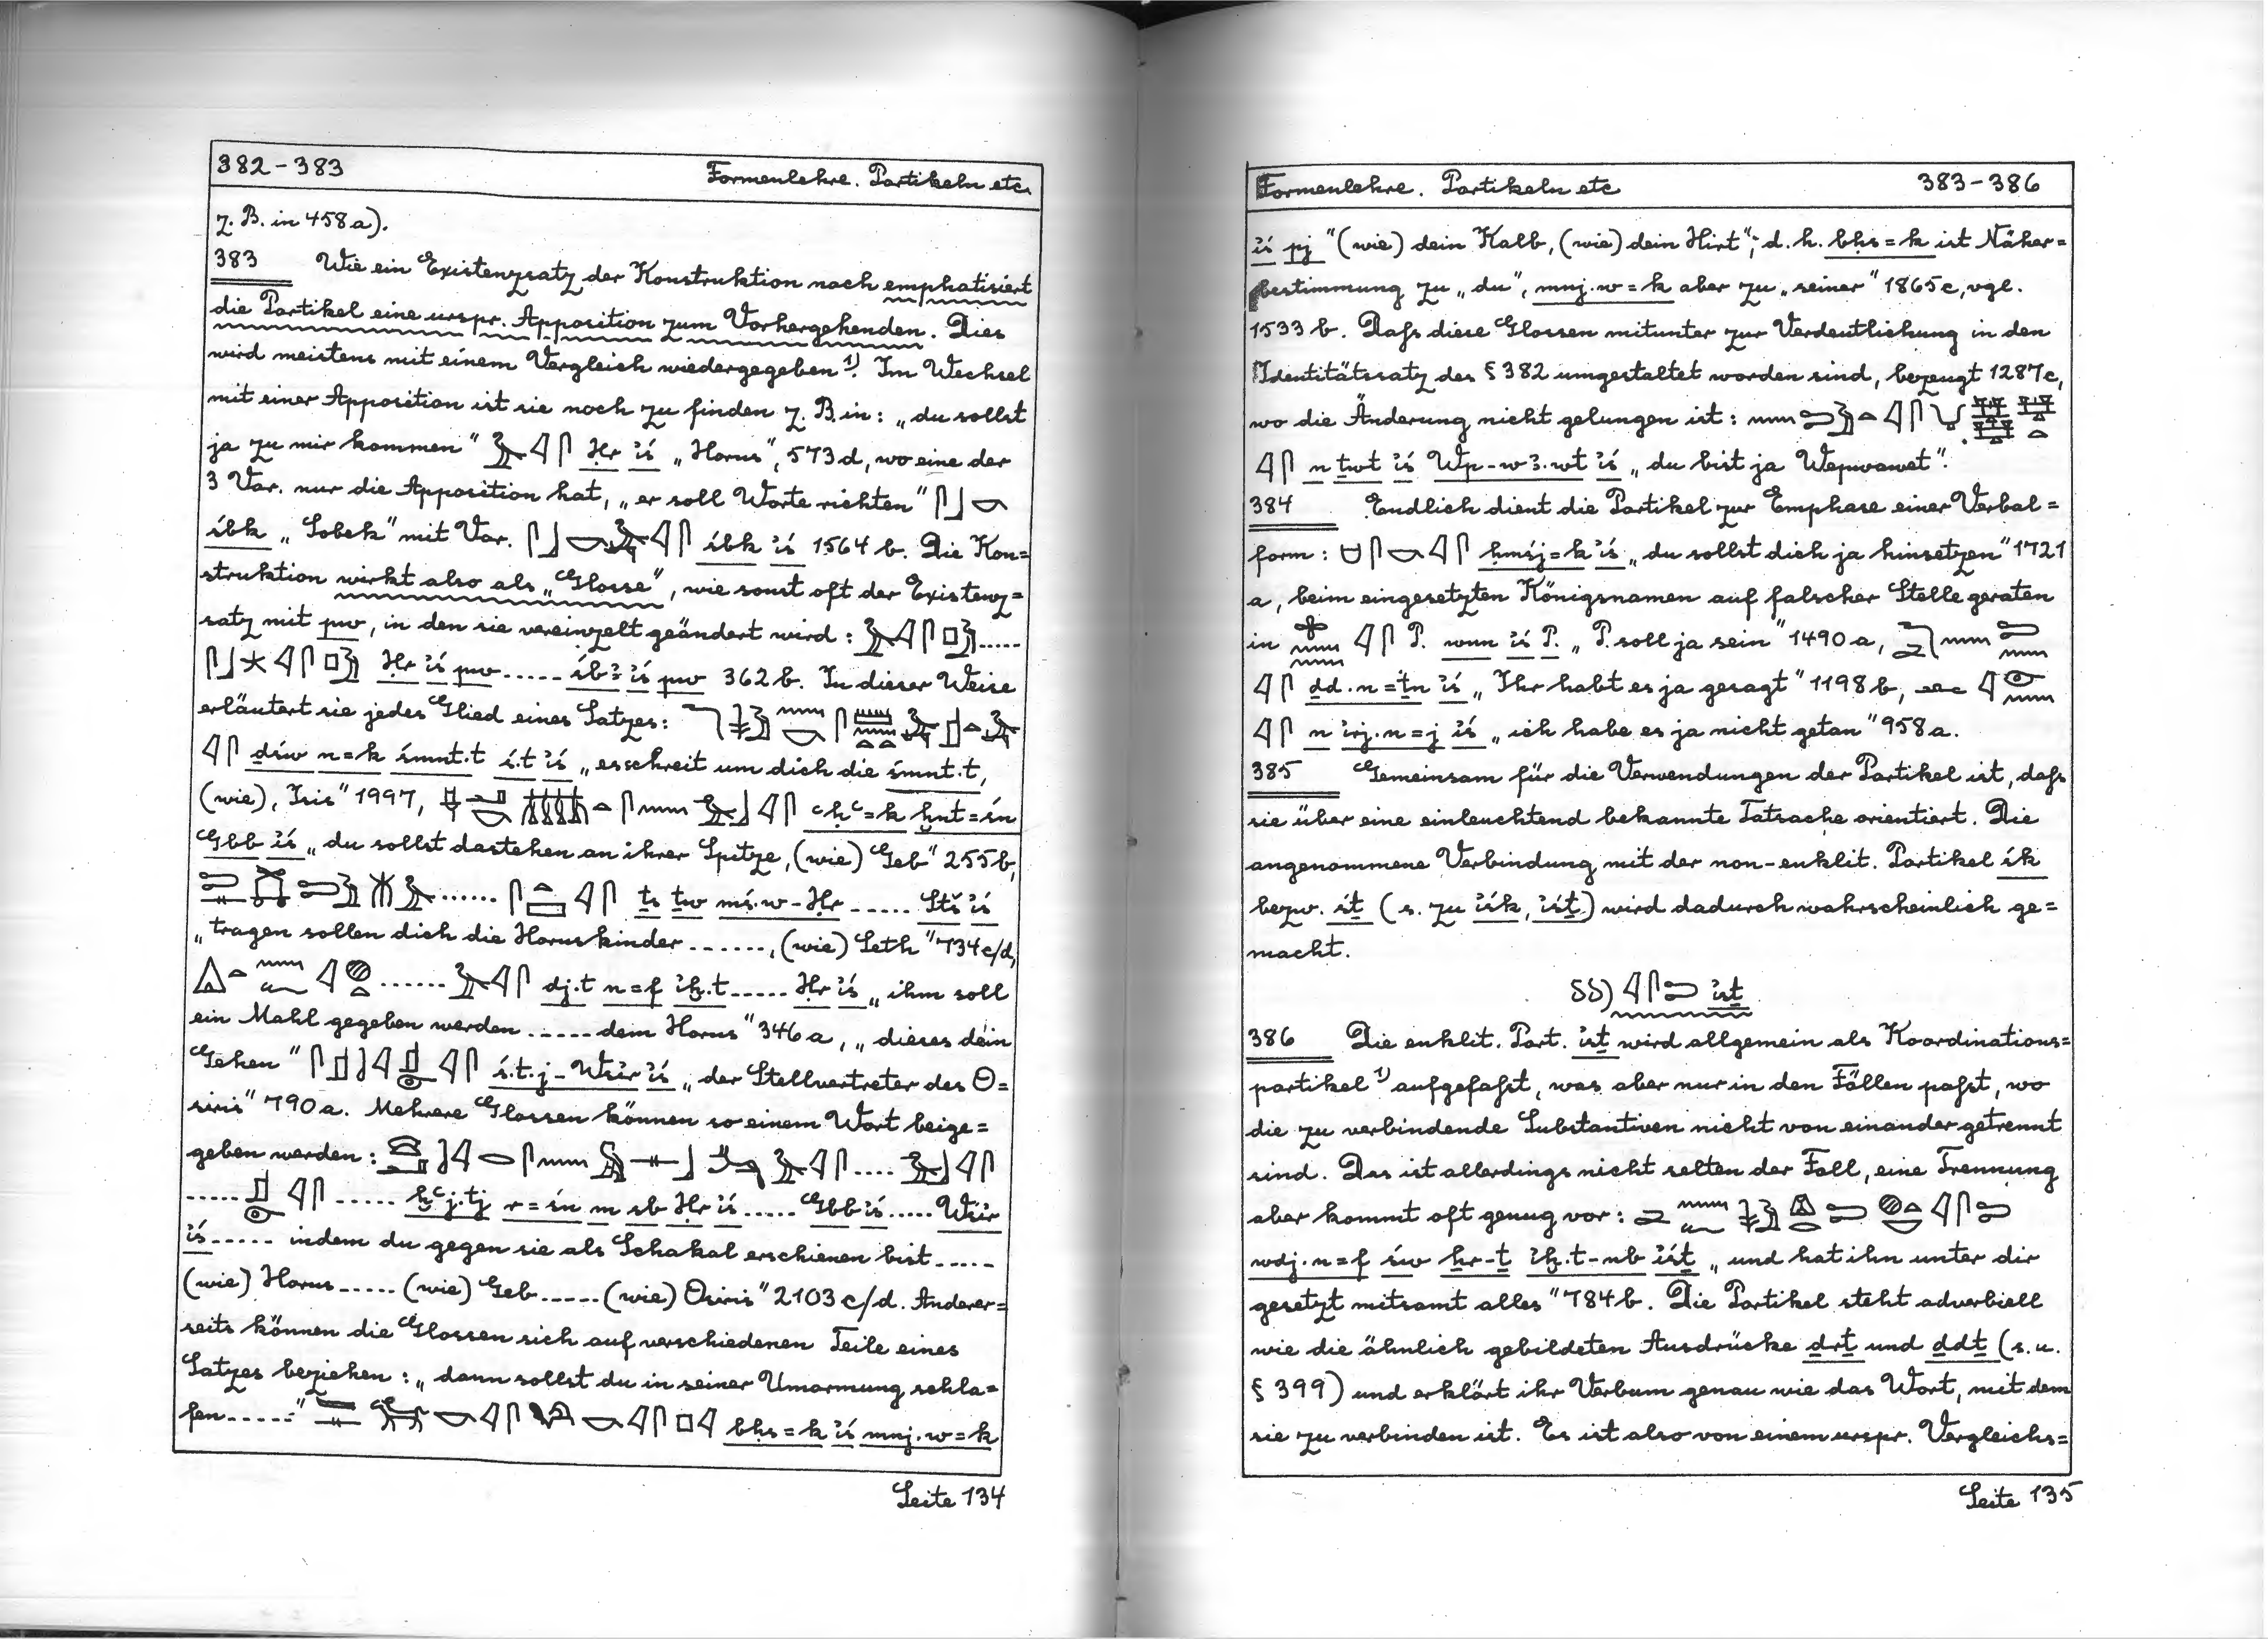 382-383 Formenlehre. Partikeln etc.
z. B. in 458a).
383 Wie ein Existenzsatz der Konstruktion nach emphatisiert
die Partikel eine urspr. Apposition zum Vorhergehenden. Dies
wird meistens mit einem Vergleich wiedergegeben 1). Im Wechsel
mit einer Apposition ist sie noch zu finden z. B. in: „du sollst
ja zu mir kommen" Ḥr ı͗ś „Horus", 573d, wo eine der
3 Var. nur die Apposition hat, „er soll Worte richten"
śbk „Sobek" mit Var. śbk ı͗ś 1564 b. Die Kon=
struktion wirkt also als „Glosse", wie sonst oft der Existenz=
satz mit pw, in den sie vereinzelt geändert wird: .....
Ḥr ı͗ś pw ..... śbꜣ ı͗ś pw 362 b. In dieser Weise
erläutert sie jedes Glied eines Satzes:
ḏśw n=k śmnt.t ś.t ı͗ś „es schreit um dich die śmnt.t,
(wie), Isis" 1997, ꜥḥꜥ=k ḫnt=śn
Gbb ı͗ś „du sollst dastehen an ihrer Spitze, (wie) Geb" 255b,
...... ṯs ṯw mś.w-Ḥr ..... Stš ı͗ś
„tragen sollen dich die Horuskinder ......, (wie) Seth" 734c/d,
...... dj.t n=f ı͗ḫ.t ..... Ḥr ı͗ś „ihm soll
ein Mahl gegeben werden ..... dem Horus" 346a, „dieses dein
Gehen" ś.t.j-Wśı͗r ı͗ś „der Stellvertreter des O=
siris" 790a. Mehrere Glossen können so einem Wort beige=
geben werden: ....
..... ..... ḫꜥj.tj r=śn m sb Ḥr ı͗ś ..... Gbb ı͗ś ..... Wśı͗r
ı͗ś ..... indem du gegen sie als Schakal erschienen bist .....
(wie) Horus ..... (wie) Geb ..... (wie) Osiris" 2103 c/d. Anderer=
seits können die Glossen sich auf verschiedenen Teile eines
Satzes beziehen: „dann sollst du in seiner Umarmung schla=
fen ....." bḥs=k ı͗ś mnj.w=k
Seite 134
Formenlehre. Partikeln etc 383-386
ı͗ś pj "(wie) dein Kalb, (wie) dein Hirt"; d. h. bḥs=k ist Näher=
bestimmung zu „du", mnj.w=k aber zu „seiner" 1865c, vgl.
1533 b. Daß diese Glossen mitunter zur Verdeutlichung in den
Identitätssatz des § 382 umgestaltet worden sind, bezeugt 1287c,
wo die Änderung nicht gelungen ist:
n ṯwt ı͗ś Wp-wꜣ.wt ı͗ś „du bist ja Wepwawet".
384 Endlich dient die Partikel zur Emphase einer Verbal=
form: ḥmśj=k ı͗ś „du sollst dich ja hinsetzen" 1721
a, beim eingesetzten Königsnamen auf falscher Stelle geraten
in P. wnn ı͗ś P. „P. soll ja sein" 1490a,
ḏd.n=ṯn ı͗ś „Ihr habt es ja gesagt" 1198b,
n ı͗rj.n=j ı͗ś „ich habe es ja nicht getan" 958a.
385 Gemeinsam für die Verwendungen der Partikel ist, daß
sie über eine einleuchtend bekannte Tatsache orientiert. Die
angenommene Verbindung mit der non-enklit. Partikel śk
bezw. śṯ (s. zu ı͗śk, ı͗śṯ) wird dadurch wahrscheinlich ge=
macht.
δδ) ı͗śṯ
386 Die enklit. Part. ı͗śṯ wird allgemein als Koordinations=
partikel 1) aufgefaßt, was aber nur in den Fällen paßt, wo
die zu verbindende Substantiven nicht von einander getrennt
sind. Das ist allerdings nicht selten der Fall, eine Trennung
aber kommt oft genug vor:
wdj.n=f św ẖr-ṯ ı͗ḫ.t-nb ı͗śṯ „und hat ihn unter dir
gesetzt mitsamt alles" 784b. Die Partikel steht adverbiell
wie die ähnlich gebildeten Ausdrücke ḏrṯ und ḏdṯ (s. u.
§ 399) und erklärt ihr Verbum genau wie das Wort, mit dem
sie zu verbinden ist. Es ist also von einem urspr. Vergleichs=
Seite 135